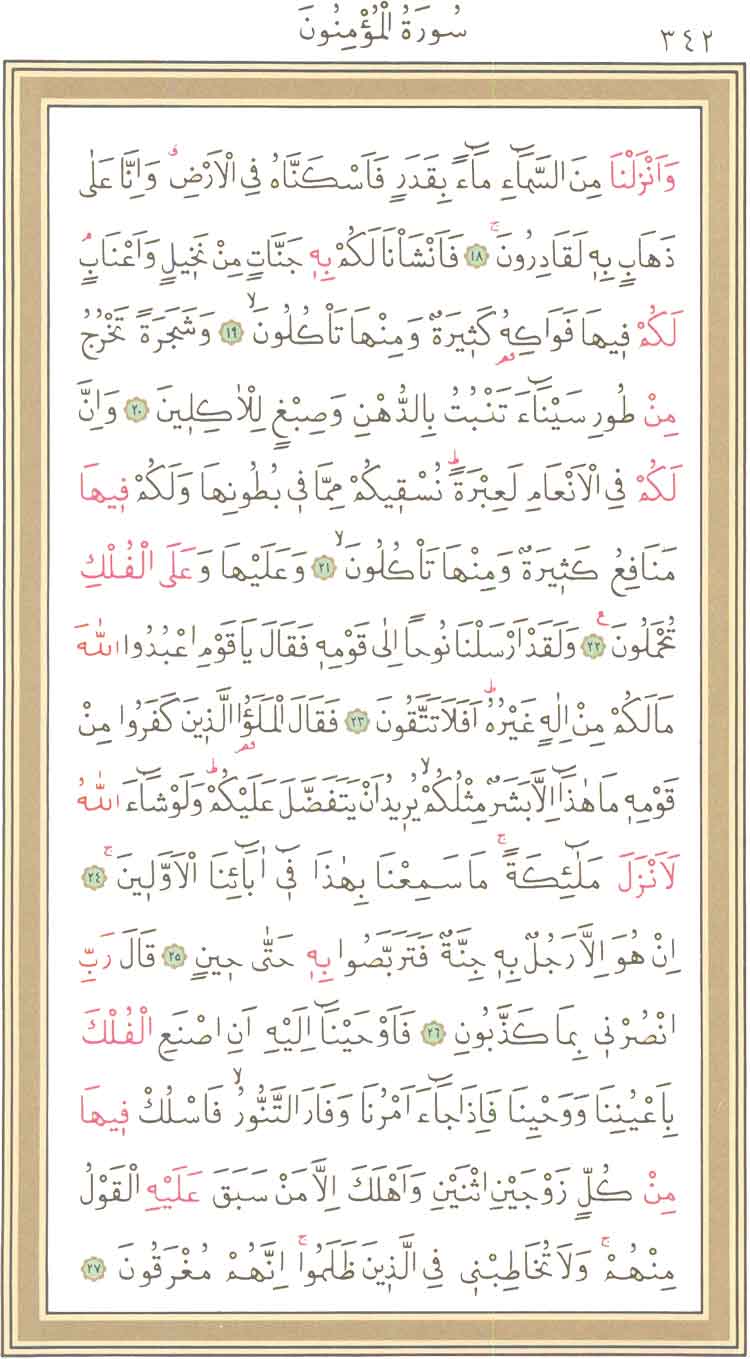 سُورَةُ الْمُؤْمِنُونَ ٣٤٢
وَاَنْزَلْنَا مِنَ السَّمَٓاءِ مَٓاءً بِقَدَرٍ فَاَسْكَنَّاهُ فِي الْاَرْضِۗ وَاِنَّا عَلٰى
ذَهَابٍ بِه۪ لَقَادِرُونَۚ ﴿١٨﴾ فَاَنْشَأْنَا لَكُمْ بِه۪ جَنَّاتٍ مِنْ نَخ۪يلٍ وَاَعْنَابٍۢ
لَكُمْ ف۪يهَا فَوَاكِهُ كَث۪يرَةٌ وَمِنْهَا تَأْكُلُونَۙ ﴿١٩﴾ وَشَجَرَةً تَخْرُجُ
مِنْ طُورِ سَيْنَٓاءَ تَنْبُتُ بِالدُّهْنِ وَصِبْغٍ لِلْاٰكِل۪ينَ ﴿٢٠﴾ وَاِنَّ
لَكُمْ فِي الْاَنْعَامِ لَعِبْرَةًۜ نُسْق۪يكُمْ مِمَّا ف۪ي بُطُونِهَا وَلَكُمْ ف۪يهَا
مَنَافِعُ كَث۪يرَةٌ وَمِنْهَا تَأْكُلُونَۙ ﴿٢١﴾ وَعَلَيْهَا وَعَلَى الْفُلْكِ
تُحْمَلُونَ۟ ﴿٢٢﴾ وَلَقَدْ اَرْسَلْنَا نُوحاً اِلٰى قَوْمِه۪ فَقَالَ يَا قَوْمِ اعْبُدُوا اللّٰهَ
مَا لَكُمْ مِنْ اِلٰهٍ غَيْرُهُۜ اَفَلَا تَتَّقُونَ ﴿٢٣﴾ فَقَالَ الْمَلَؤُا الَّذ۪ينَ كَفَرُوا مِنْ
قَوْمِه۪ مَا هٰذَٓا اِلَّا بَشَرٌ مِثْلُكُمْۙ يُر۪يدُ اَنْ يَتَفَضَّلَ عَلَيْكُمْۜ وَلَوْ شَٓاءَ اللّٰهُ
لَاَنْزَلَ مَلٰٓئِكَةًۚ مَا سَمِعْنَا بِهٰذَا ف۪ٓي اٰبَٓائِنَا الْاَوَّل۪ينَۚ ﴿٢٤﴾
اِنْ هُوَ اِلَّا رَجُلٌ بِه۪ جِنَّةٌ فَتَرَبَّصُوا بِه۪ حَتّٰى ح۪ينٍ ﴿٢٥﴾ قَالَ رَبِّ
انْصُرْن۪ي بِمَا كَذَّبُونِ ﴿٢٦﴾ فَاَوْحَيْنَٓا اِلَيْهِ اَنِ اصْنَعِ الْفُلْكَ
بِاَعْيُنِنَا وَوَحْيِنَا فَاِذَا جَٓاءَ اَمْرُنَا وَفَارَ التَّنُّورُۙ فَاسْلُكْ ف۪يهَا
مِنْ كُلٍّ زَوْجَيْنِ اثْنَيْنِ وَاَهْلَكَ اِلَّا مَنْ سَبَقَ عَلَيْهِ الْقَوْلُ
مِنْهُمْۚ وَلَا تُخَاطِبْن۪ي فِي الَّذ۪ينَ ظَلَمُواۚ اِنَّهُمْ مُغْرَقُونَ ﴿٢٧﴾